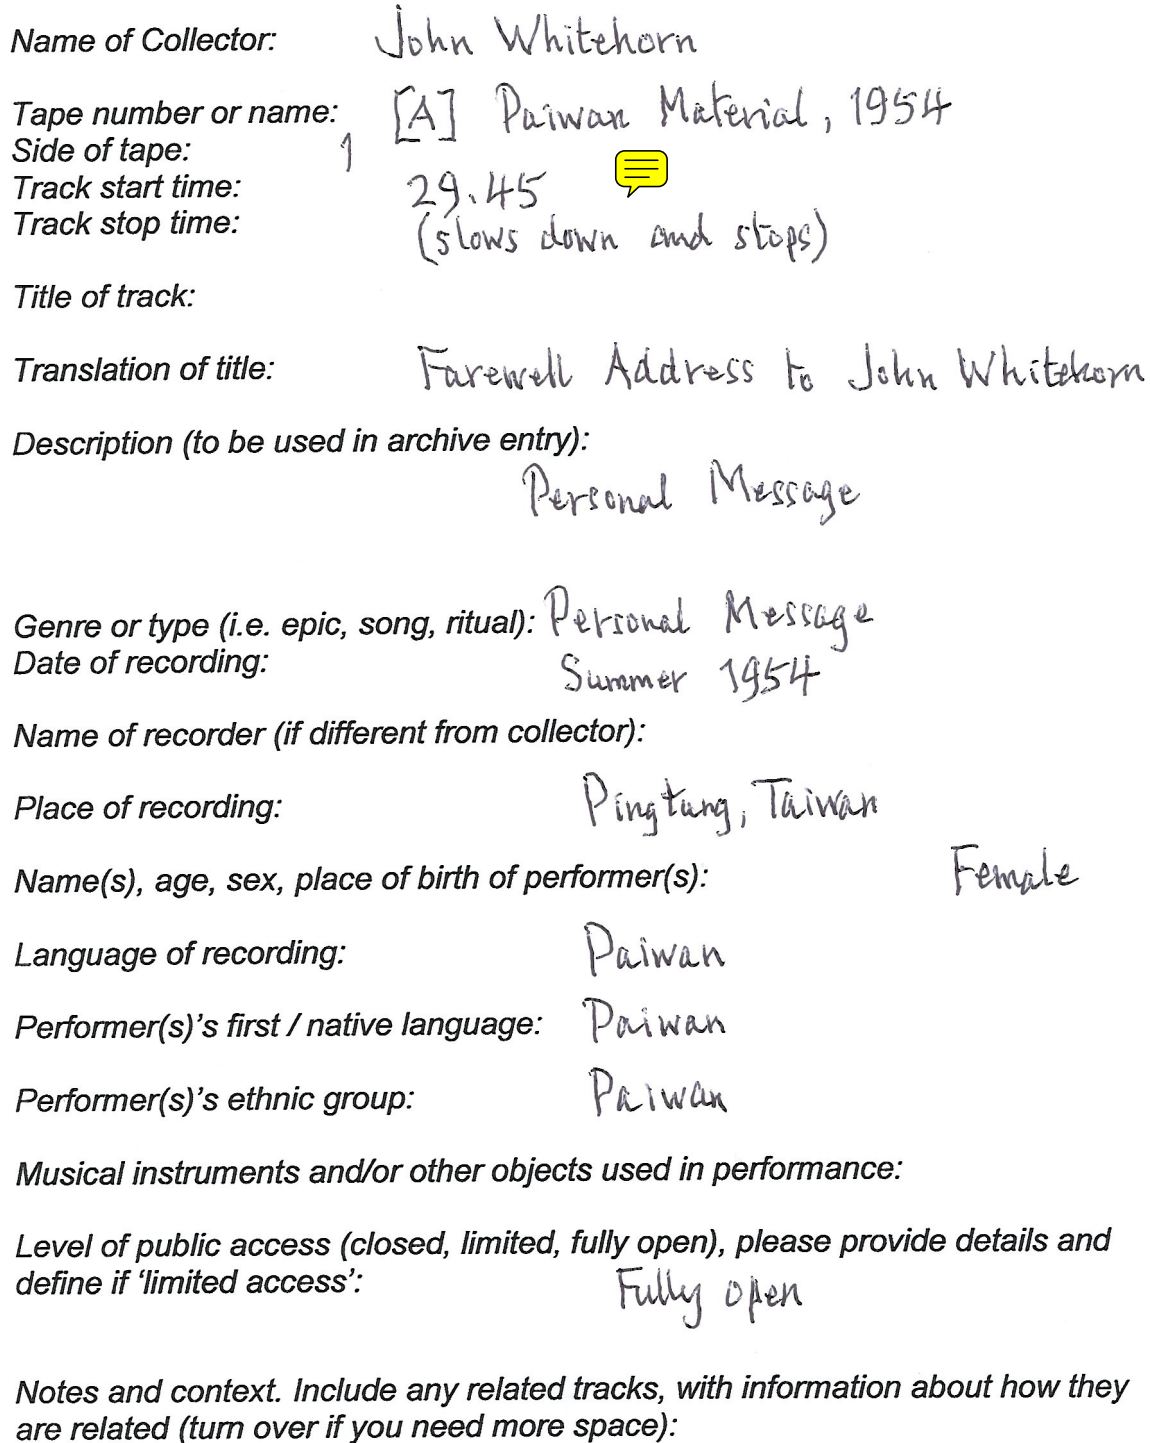 Name of Collector: John Whitehorn
Tape number or name: [A] Paiwan Material, 1954
Side of tape: 1
Track start time: 29.45
Track stop time: (slows down and stops)
Title of track:
Translation of title: Farewell Address to John Whitehorn
Description (to be used in archive entry):
Personal Message
Genre or type (i.e. epic, song, ritual): Personal Message
Date of recording: Summer 1954
Name of recorder (if different from collector):
Place of recording: Pingtung, Taiwan
Name(s), age, sex, place of birth of performer(s): Female
Language of recording: Paiwan
Performer(s)'s first / native language: Paiwan
Performer(s)'s ethnic group: Paiwan
Musical instruments and/or other objects used in performance:
Level of public access (closed, limited, fully open), please provide details and
define if 'limited access': Fully open
Notes and context. Include any related tracks, with information about how they
are related (turn over if you need more space):